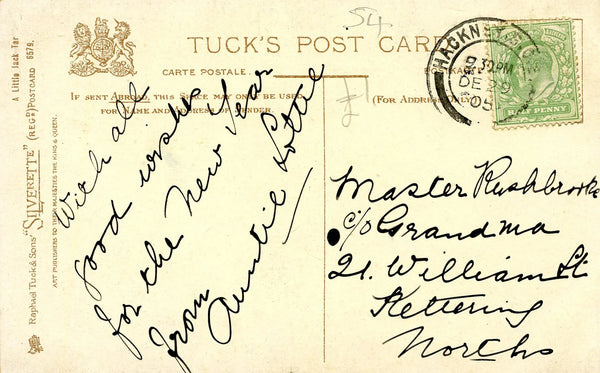 A Little Jack Tar
Raphael Tuck & Sons' "SILVERETTE" (REGD) POSTCARD 6579.
ART PUBLISHERS TO THEIR MAJESTIES THE KING & QUEEN.
TUCK'S POST CARD
CARTE POSTALE
IF SENT ABROAD, THIS SPACE MAY ONLY BE USED
FOR NAME AND ADDRESS OF SENDER.
(FOR ADDRESS
54
£1
HACKNEY
PM
DE 29
05
PENNY
With all
good wishes
for the New Year
from
Auntie Lottie
Master Rushbrooke
c/o Grandma
21. William St
Kettering
Norths